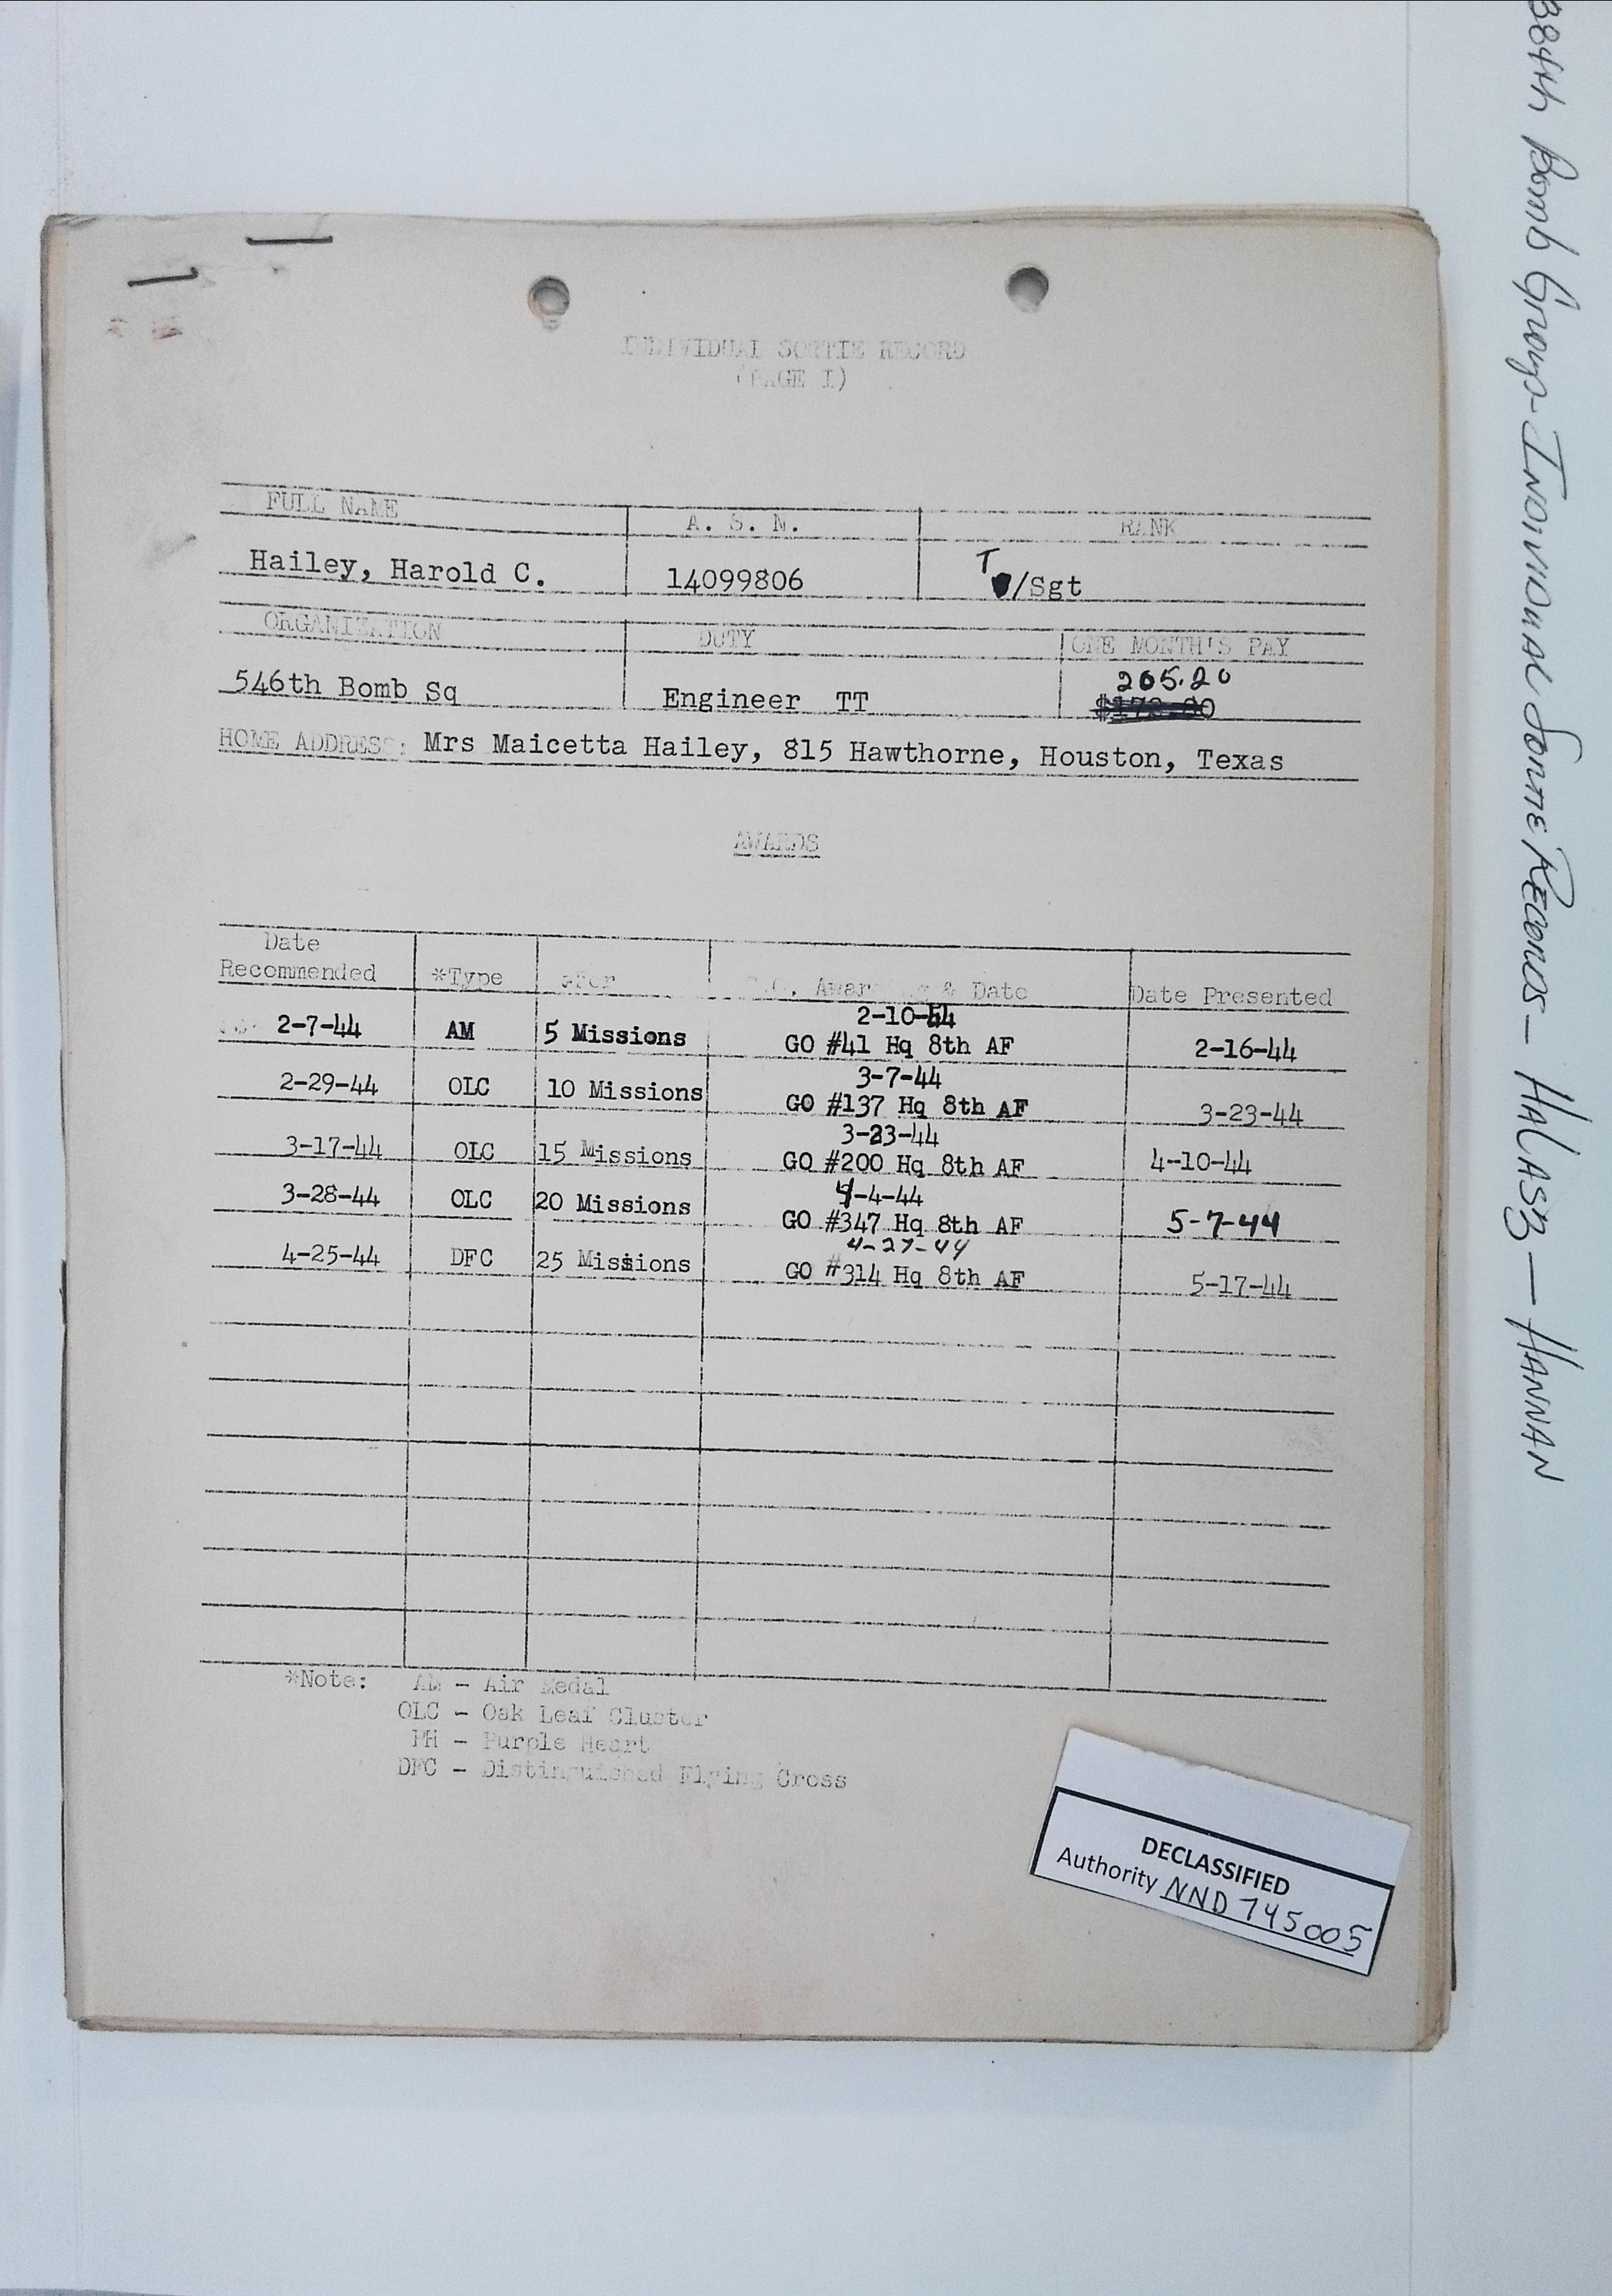 INDIVIDUAL SORTIE RECORD
(PAGE I)
FULL NAME A. S. N. RANK
Hailey, Harold C. 14099806 T/Sgt
ORGANIZATION DUTY ONE MONTH'S PAY
205.20
546th Bomb Sq Engineer TT
HOME ADDRESS: Mrs Maicetta Hailey, 815 Hawthorne, Houston, Texas
AWARDS
Date
Recommended *Type For G.O. Awarding & Date Date Presented
2-10-44
2-7-44 AM 5 Missions GO #41 Hq 8th AF 2-16-44
3-7-44
2-29-44 OLC 10 Missions GO #137 Hq 8th AF 3-23-44
3-23-44
3-17-44 OLC 15 Missions GO #200 Hq 8th AF 4-10-44
4-4-44
3-28-44 OLC 20 Missions GO #347 Hq 8th AF 5-7-44
4-27-44
4-25-44 DFC 25 Missions GO #314 Hq 8th AF 5-17-44
*Note: AM - Air Medal
OLC - Oak Leaf Cluster
PH - Purple Heart
DFC - Distinguished Flying Cross
DECLASSIFIED
Authority NND 745005
384th Bomb Group - Individual Sortie Records - HALASZ - HANNAN